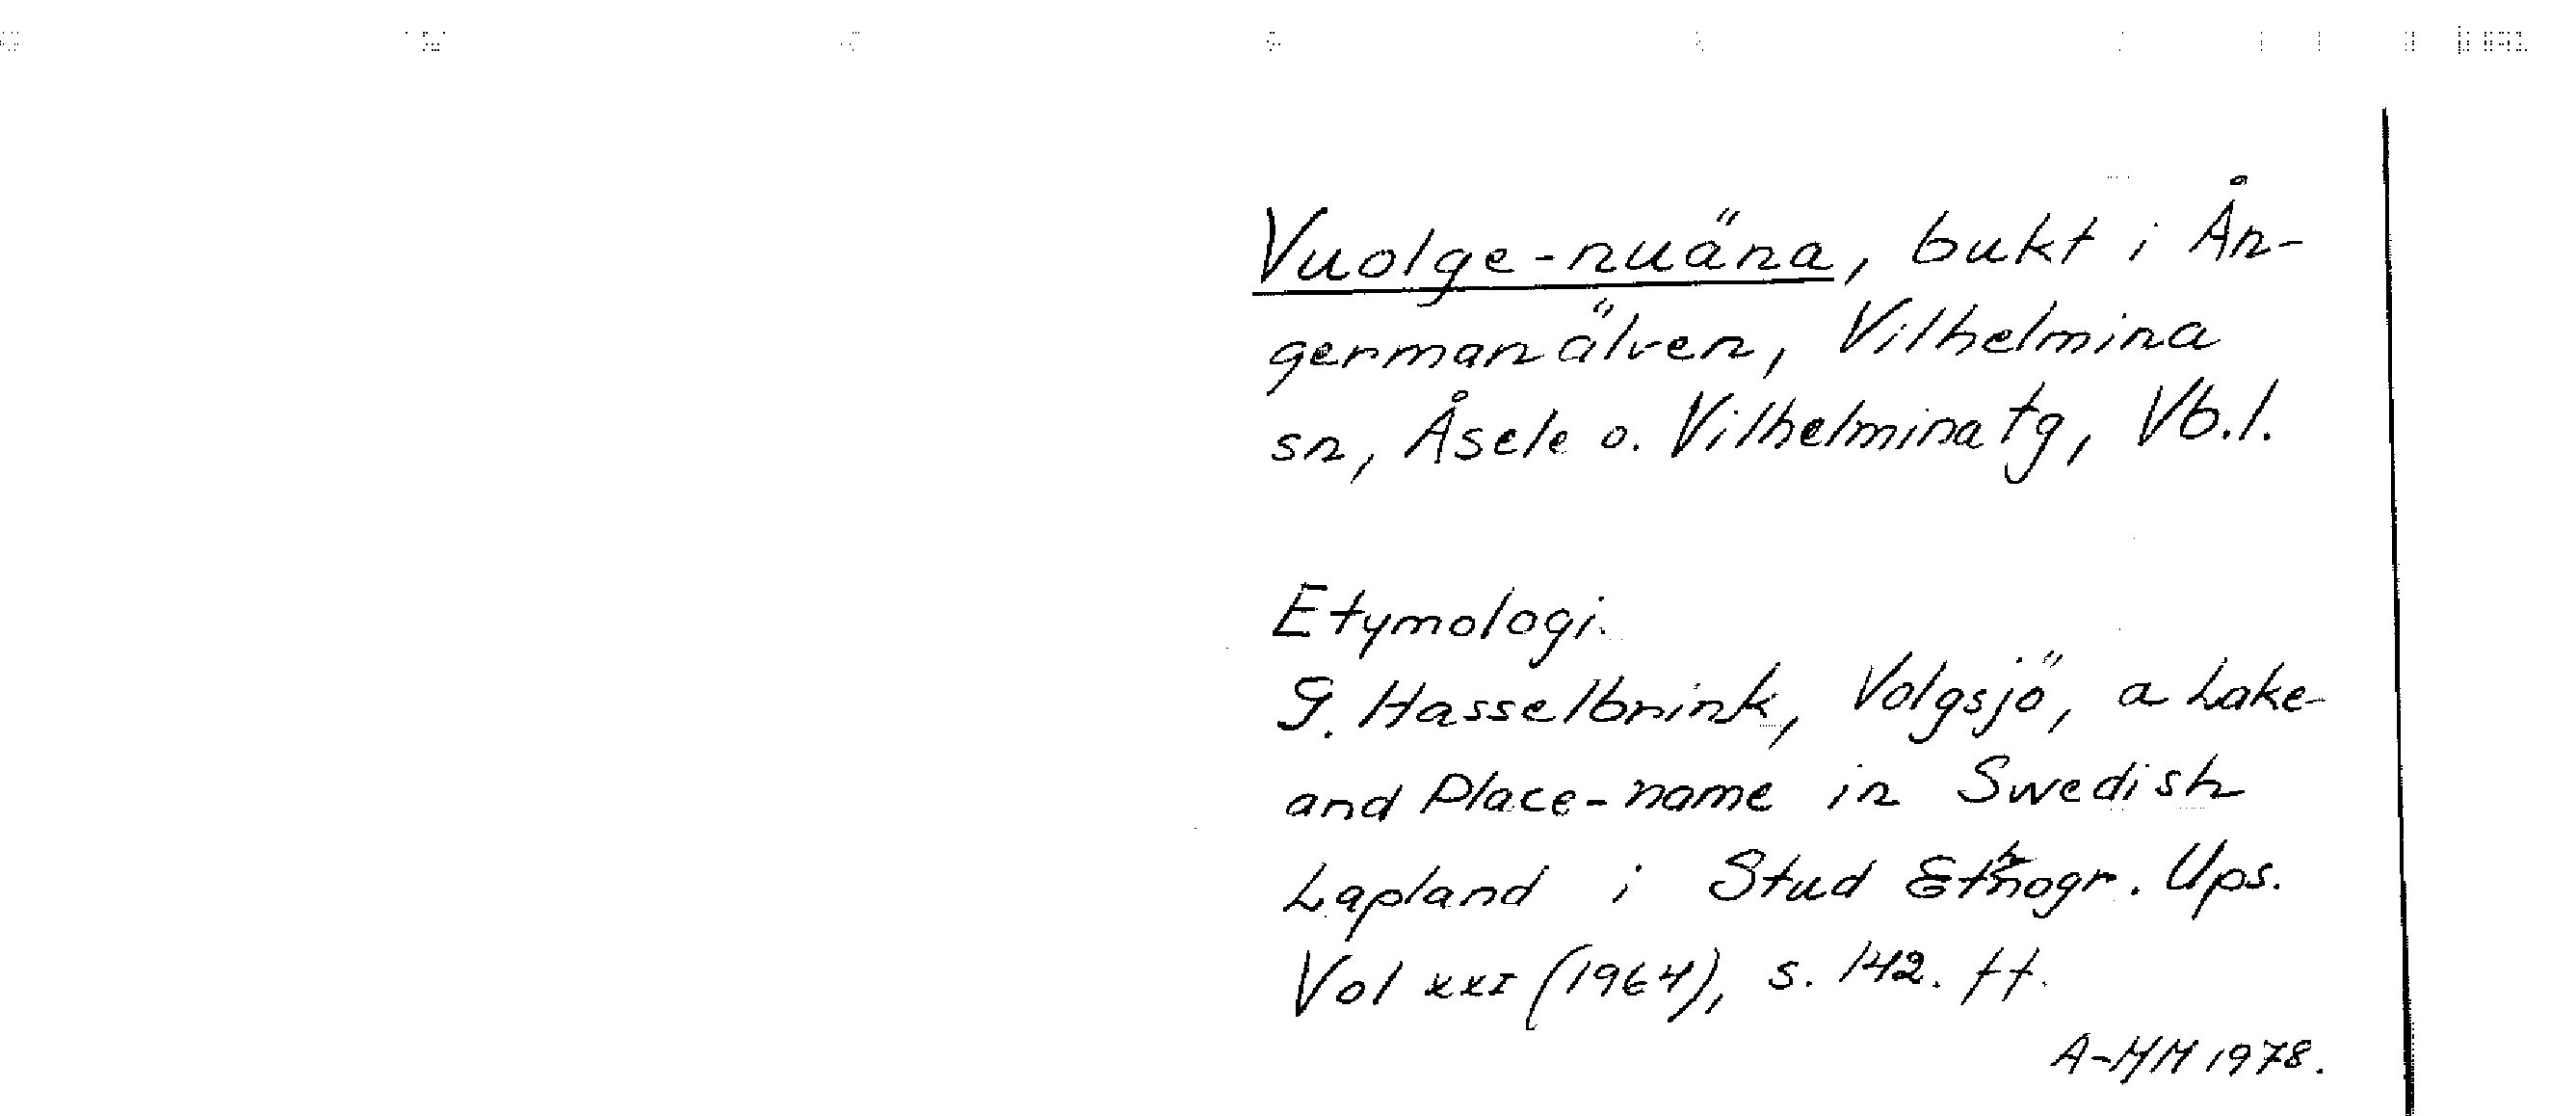 Vuolge-nuäna, bukt i Ån-
germanälven, Vilhelmina
sn, Åsele o. Vilhelmina tg, Vb.l.
Etymologi.
G. Hasselbrink, Volgsjö, a Lake-
and Place-name in Swedish
Lapland i Stud Ethnogr. Ups.
Vol XXI (1964), s. 142. ff.
A-MM 1978.